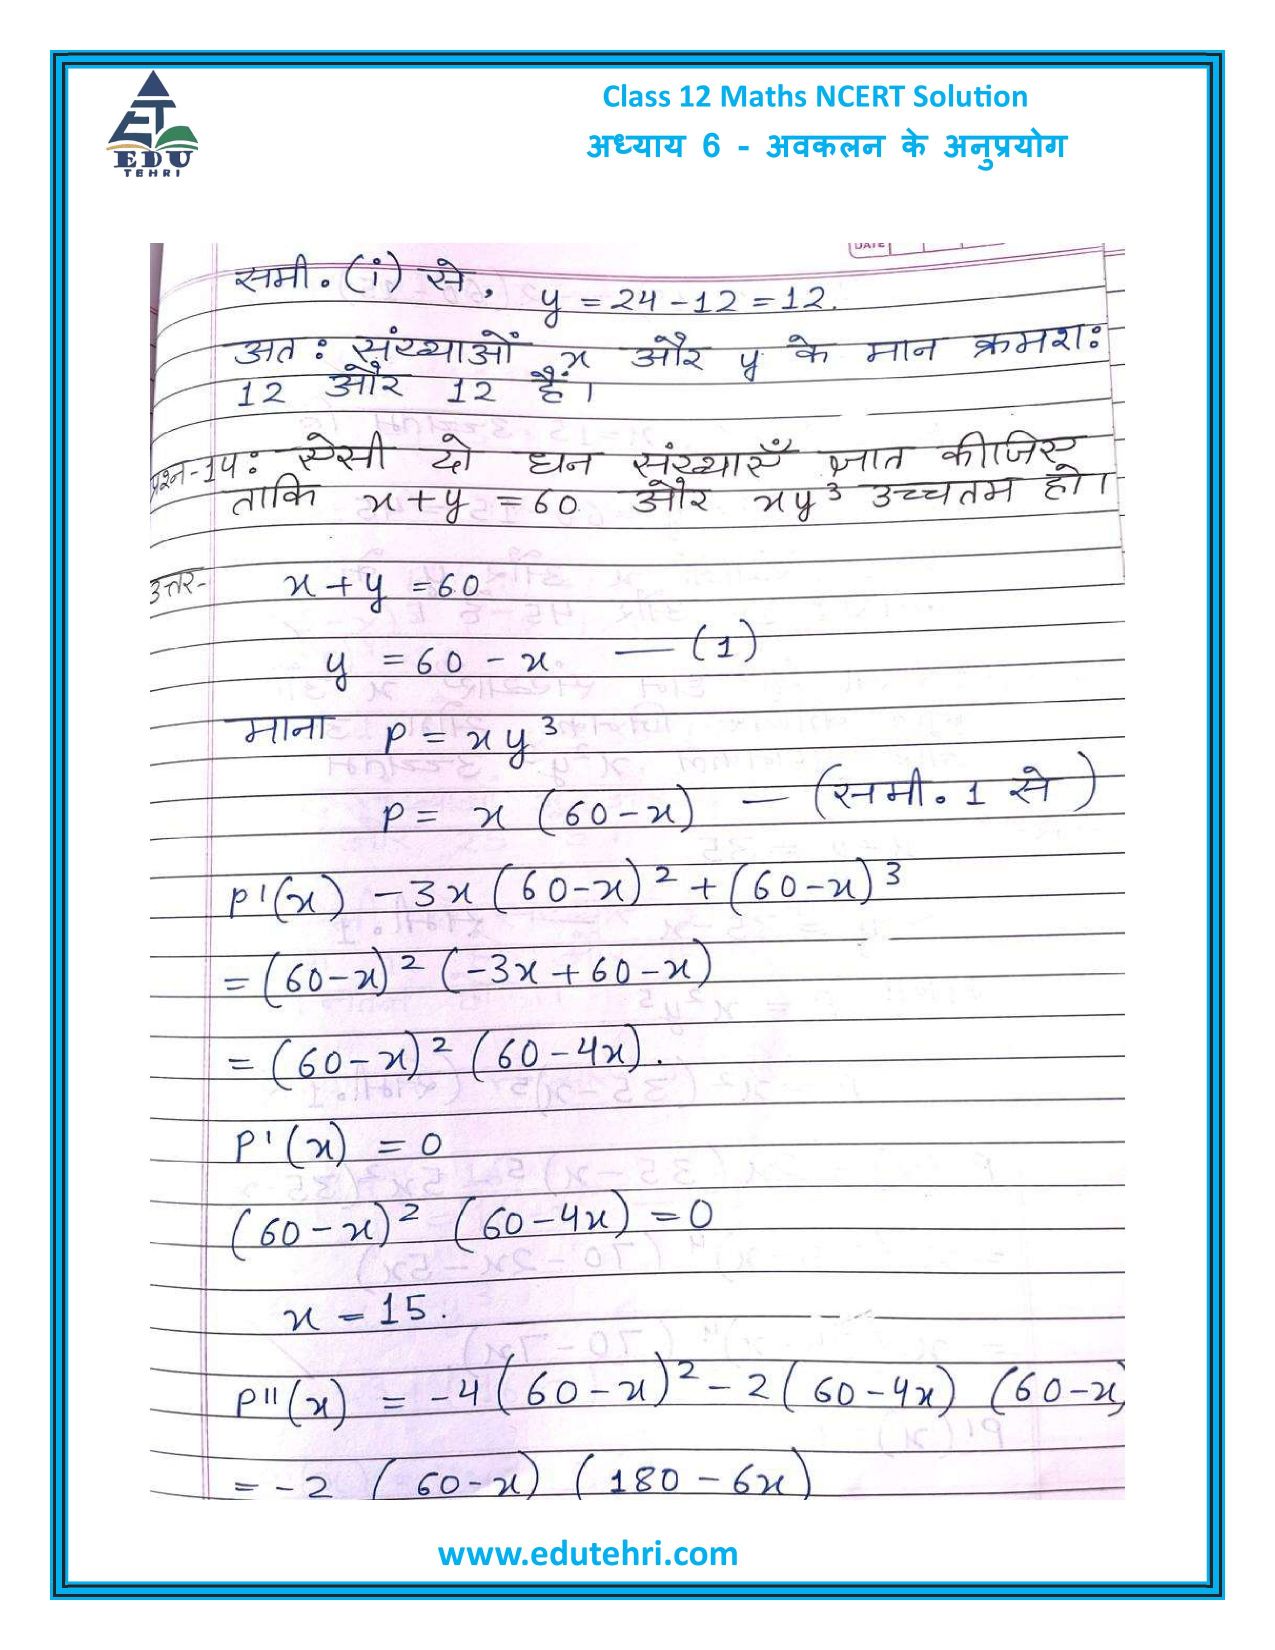 Class 12 Maths NCERT Solution
अध्याय 6 - अवकलन के अनुप्रयोग
ET
EDU
TEHRI
DATE
समी. (i) से, y = 24 - 12 = 12.
अतः संख्याओं x और y के मान क्रमशः
12 और 12 हैं।
प्रश्न-14: ऐसी दो धन संख्याएँ ज्ञात कीजिए
ताकि x + y = 60 और xy³ उच्चतम हो।
उत्तर- x + y = 60
y = 60 - x — (1)
माना P = xy³
P = x (60 - x) — (समी. 1 से)
P'(x) - 3x (60-x)² + (60-x)³
= (60-x)² (-3x + 60 - x)
= (60-x)² (60-4x).
P'(x) = 0
(60-x)² (60-4x) = 0
x = 15.
P''(x) = -4(60-x)² - 2(60-4x) (60-x
= -2 (60-x) (180-6x)
www.edutehri.com